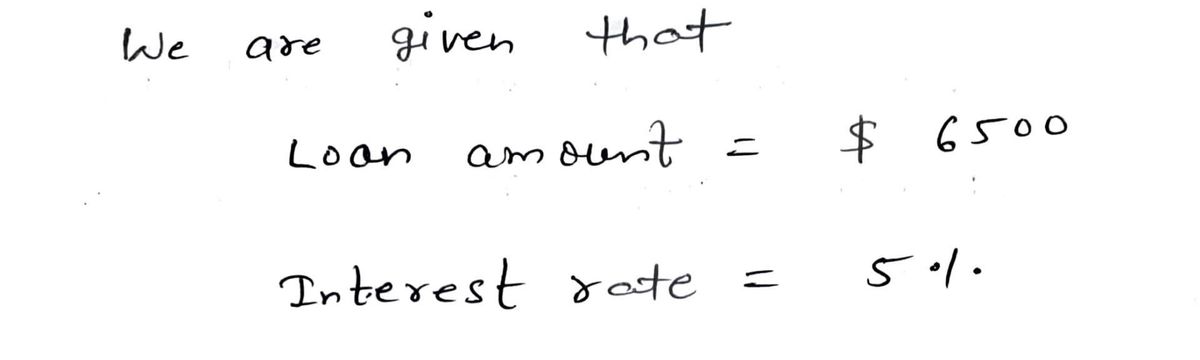 We are given that
Loan amount = $ 6500
Interest rate = 5%